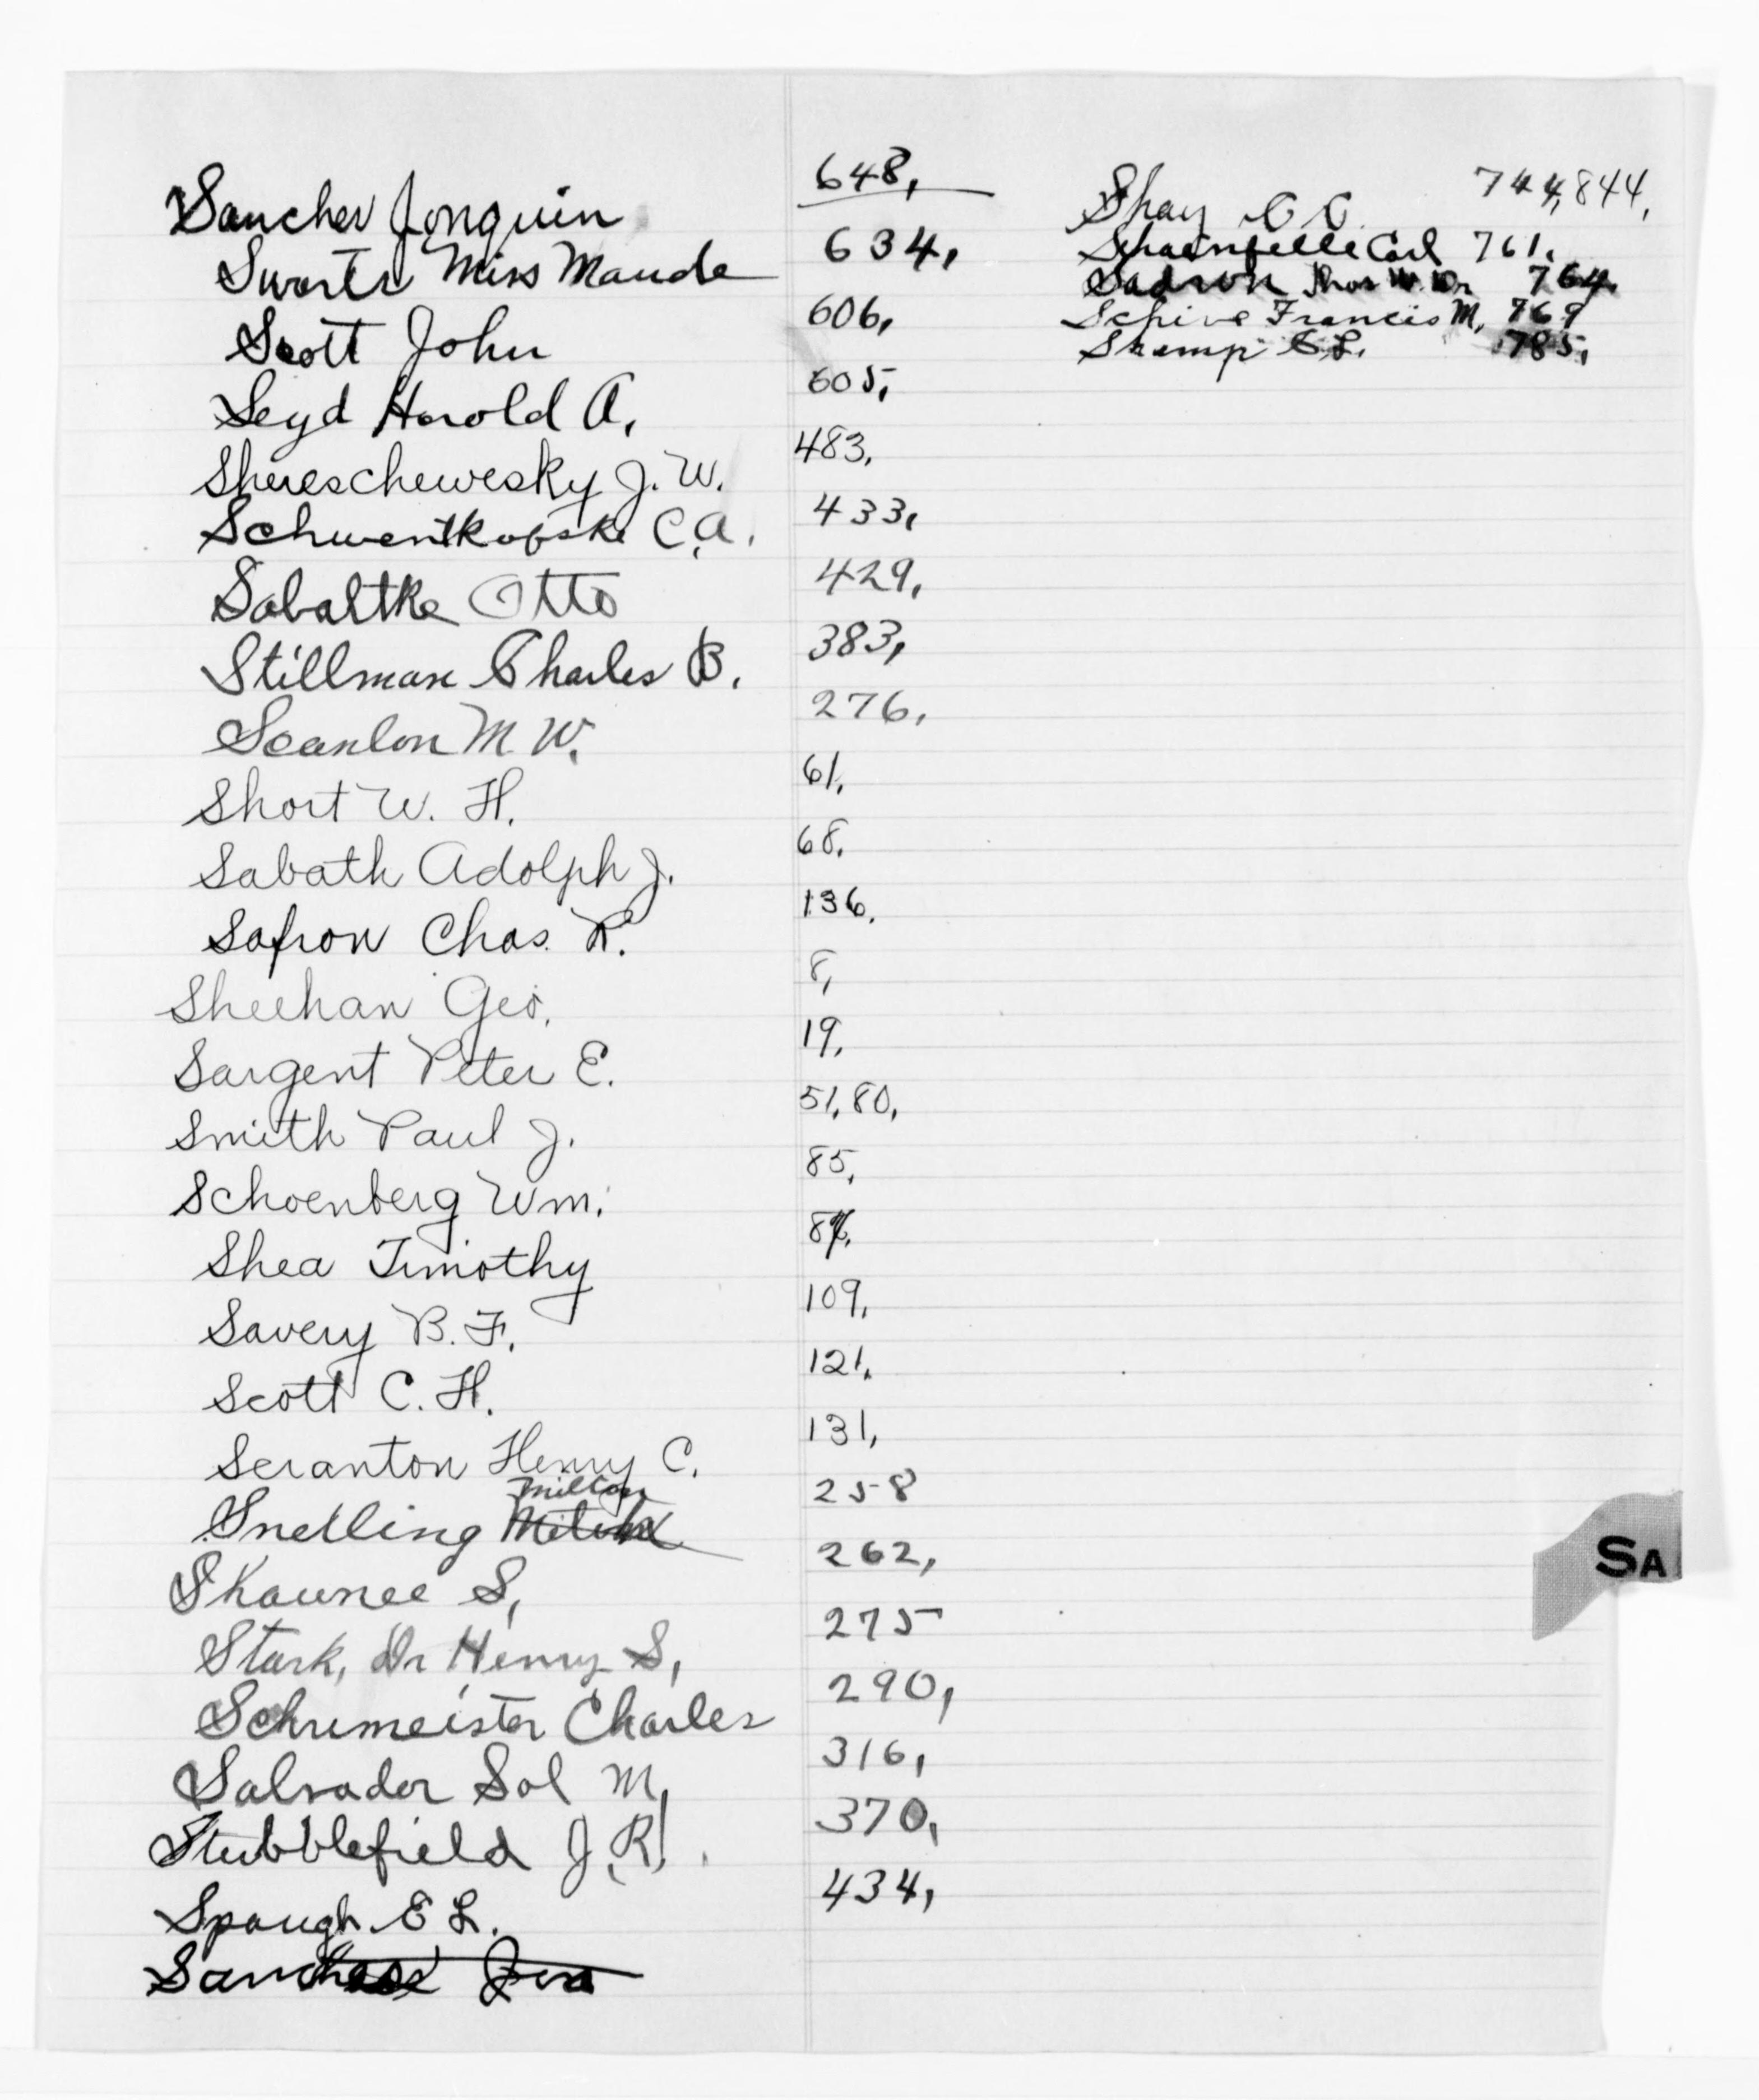 Sanches Jonquin 648,
Swarts Miss Maude 634,
Scott John 606,
Seyd Harold A, 605,
Shereschewesky J. W. 483,
Schwentkofske C.A. 433,
Sabaltke Otto 429,
Stillman Charles B. 383,
Scanlon M W. 276,
Short W. H. 61,
Sabath Adolph J. 68.
Safron Chas. R. 136.
Sheehan Geo. 8,
Sargent Peter E. 19,
Smith Paul J. 51, 80,
Schoenberg Wm. 85,
Shea Timothy
Savery B. F. 109,
Scott C. H. 121,
Scranton Henry C. 131,
Milton
Snelling 258
Shawnee S, 262,
Stark, Dr Henry S, 275
Schumeister Charles 290,
Salvador Sol M, 316,
Stubblefield J.R. 370,
Spaugh E L. 434,
Shay C C. 744, 844,
Carl 761,
764,
Schive Francis M, 769
Stamp C L. 785,
SA